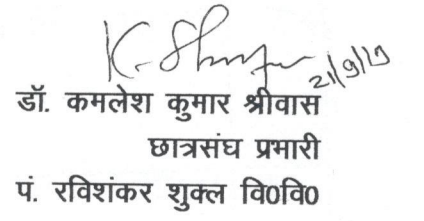 21/9/19
डॉ. कमलेश कुमार श्रीवास
छात्रसंघ प्रभारी
पं. रविशंकर शुक्ल वि0वि0